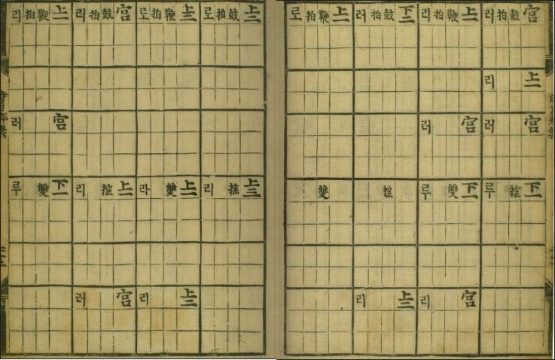 宮 鼓 拍 러
上一 리
宮 러
下一 搖 루
上一 鞭 拍 리
宮 러
下一 雙 루
宮 리
下二 鼓 拍 러
搖
上二 리
上二 鞭 拍 로
雙
上三 鼓 拍 로
上三 搖 리
上三 鞭 拍 로
上二 雙 라
上二 리
宮 鼓 拍 리
上一 搖 리
宮 러
上一 鞭 拍 리
宮 러
下一 雙 루